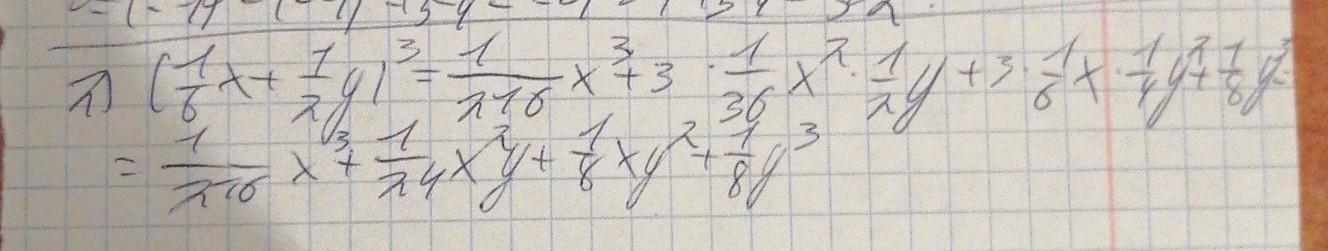 2) (1/6 x + 1/2 y)³ = 1/216 x³ + 3 · 1/36 x² · 1/2 y + 3 · 1/6 x · 1/4 y² + 1/8 y³ =
= 1/216 x³ + 1/24 x² y + 1/8 x y² + 1/8 y³